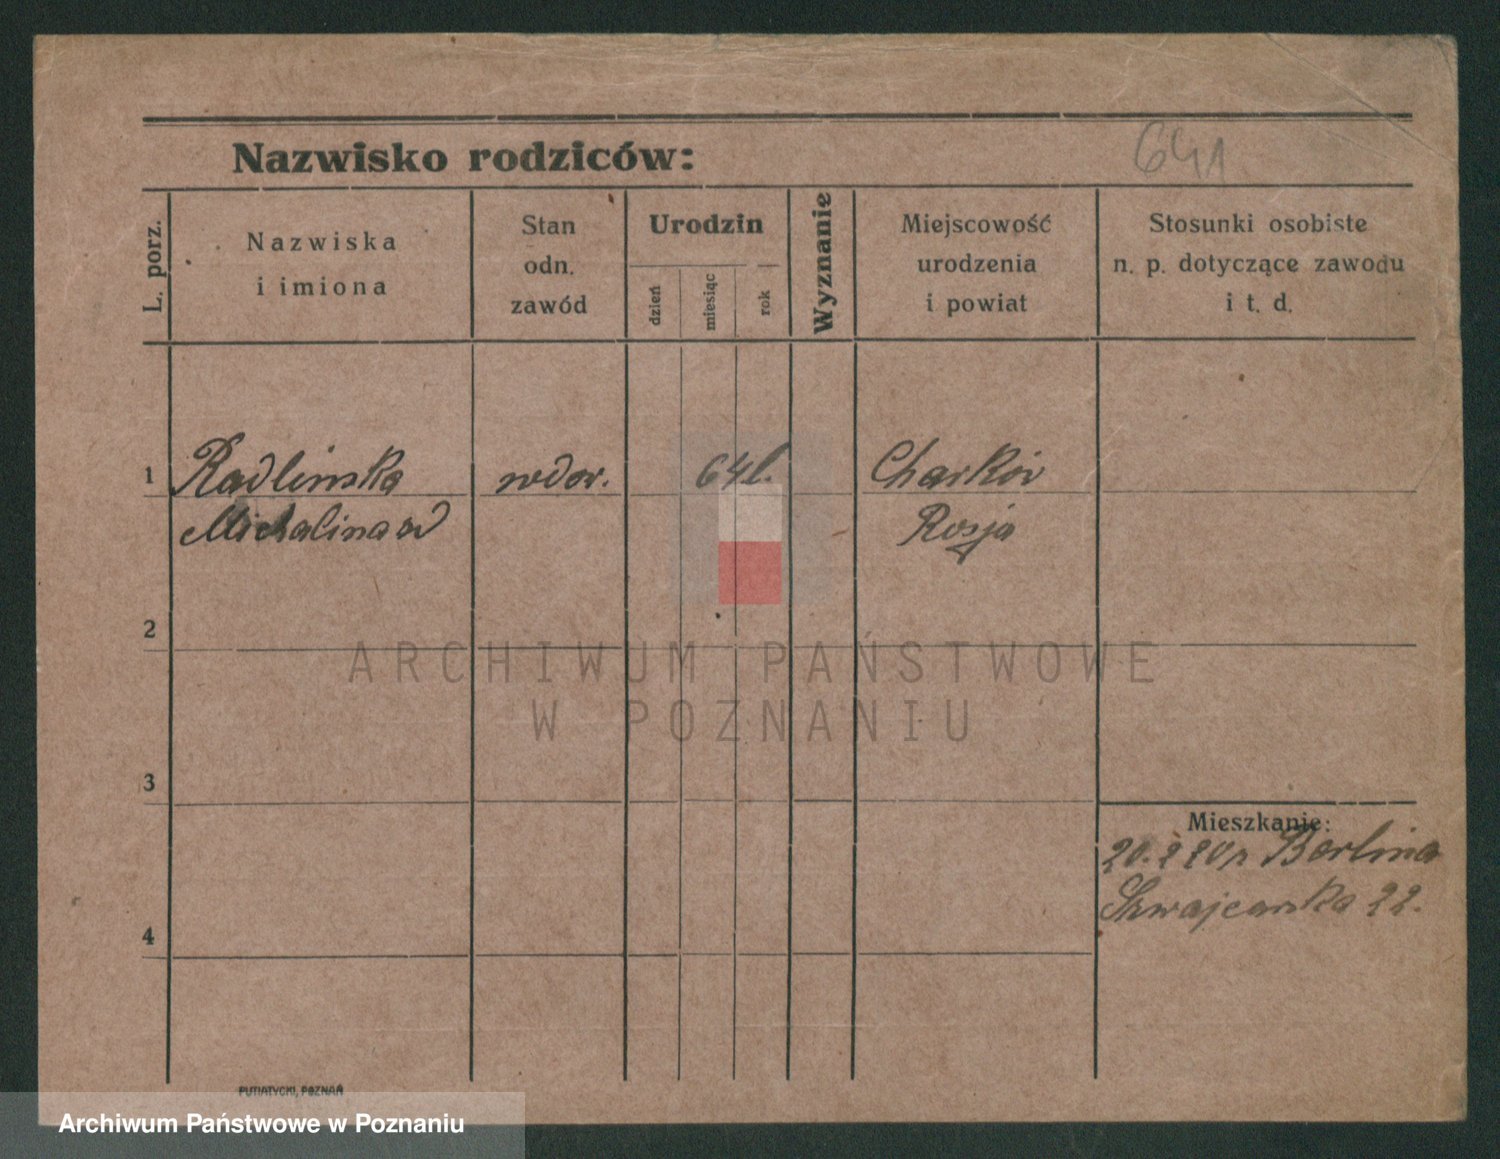 Nazwisko rodziców:
641
L. porz.
Nazwiska
i imiona
Stan
odn.
zawód
Urodzin
dzień
miesiąc
rok
Wyznanie
Miejscowość
urodzenia
i powiat
Stosunki osobiste
n. p. dotyczące zawodu
i t. d.
1 Radlinska wdow. 64 l. Charków
Michalina Rosja
2
ARCHIWUM PAŃSTWOWE
W POZNANIU
3
Mieszkanie:
20.2 20 r Berlina
Szwajcarska 22.
4
PUTIATYCKI, POZNAŃ
Archiwum Państwowe w Poznaniu